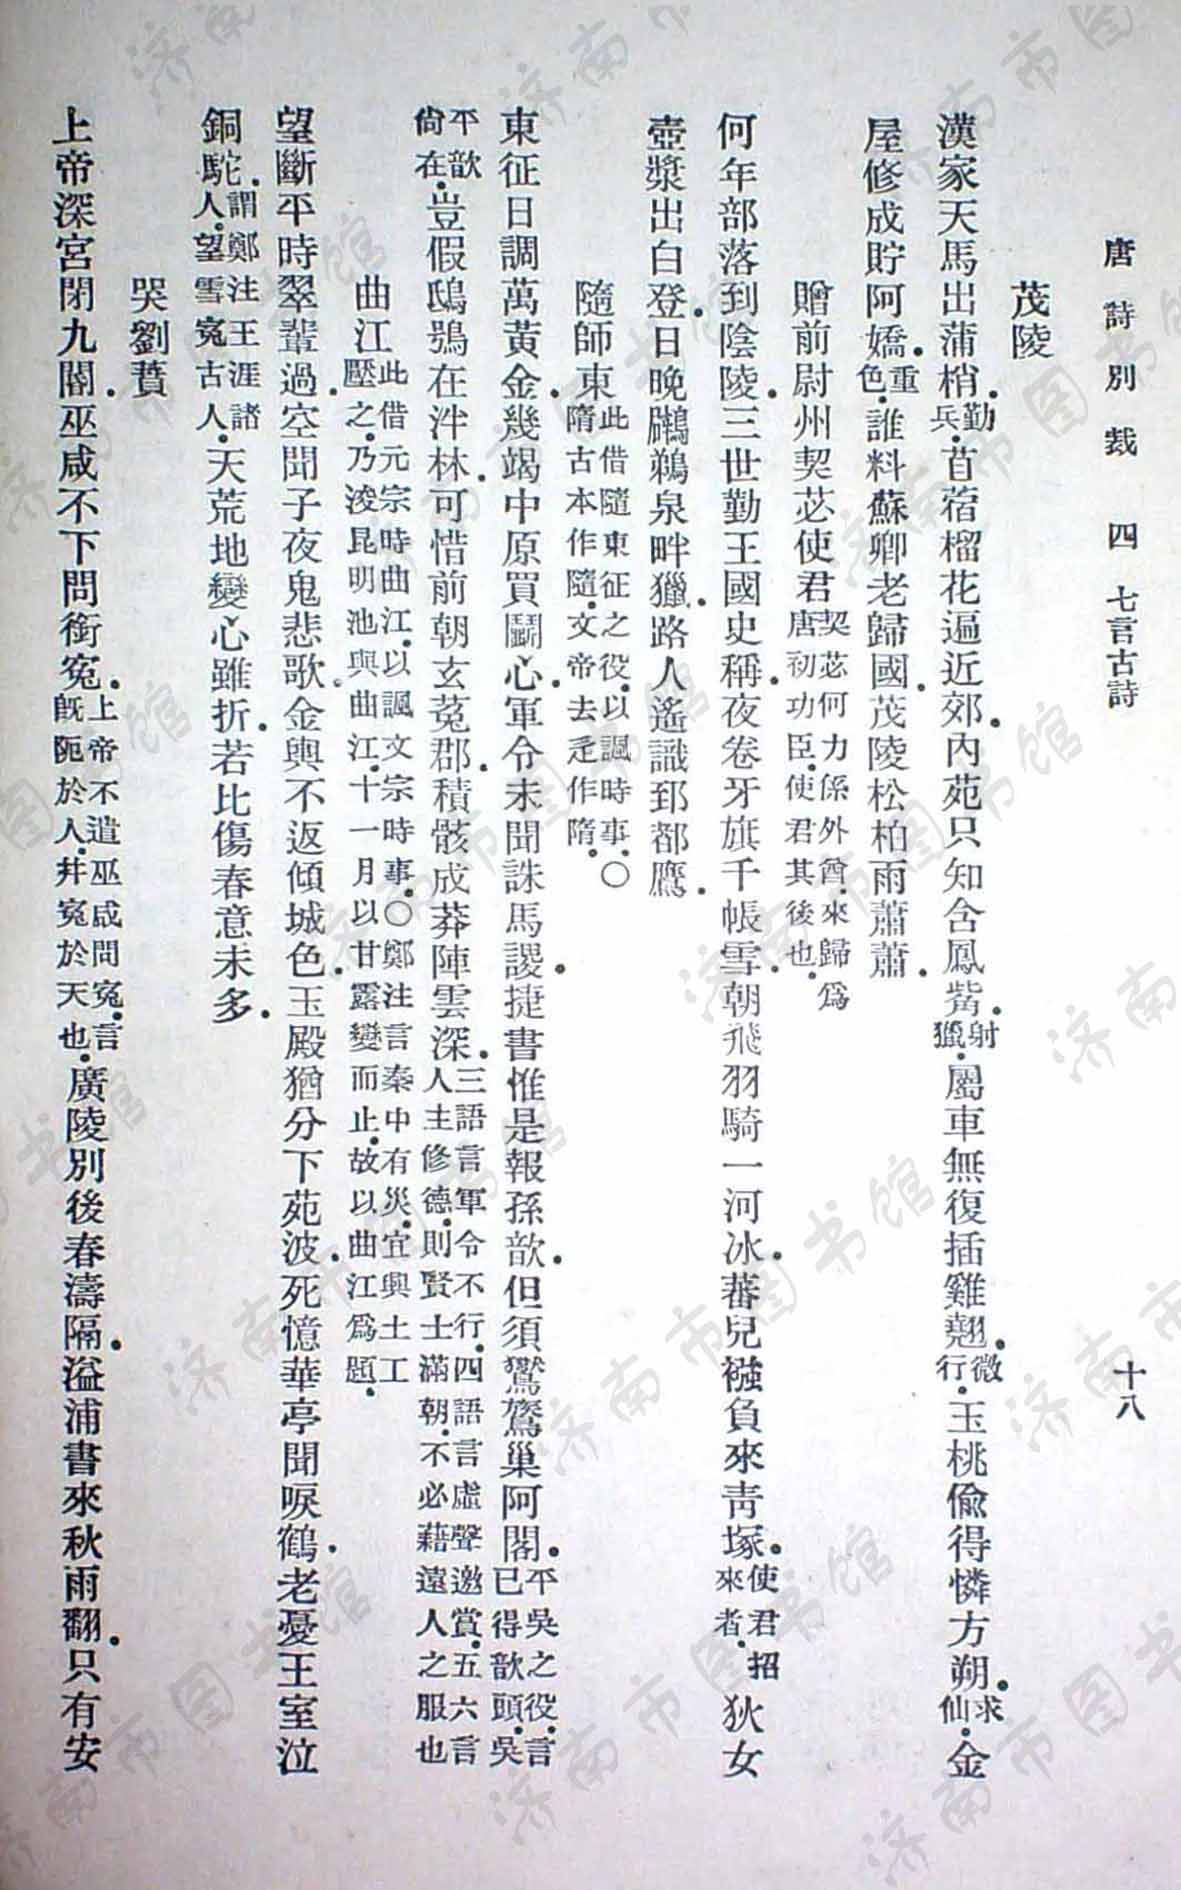 唐詩別裁 四 七言古詩 十八
茂陵
漢家天馬出蒲梢。勤兵。苜蓿榴花遍近郊。內苑只知含鳳觜。射獵。屬車無復插雞翹。微行。玉桃偷得憐方朔。求仙。金
屋修成貯阿嬌。重色。誰料蘇卿老歸國。茂陵松柏雨蕭蕭。
贈前尉州契苾使君 契苾何力係外酋。來歸爲唐初功臣。使君其後也。
何年部落到陰陵。三世勤王國史稱。夜卷牙旗千帳雪。朝飛羽騎一河冰。蕃兒襁負來靑塚。使君招來者。狄女
壺漿出白登。日晚鸊鵜泉畔獵。路人遙識郅都鷹。
隨師東 此借隨東征之役。以諷時事。〇隋古本作隨。文帝去辵作隋。
東征日調萬黃金。幾竭中原買鬬心。軍令未聞誅馬謖。捷書惟是報孫歆。但須鸑鷟巢阿閣。平吳之役。言已得歆頭。吳
平歆尚在。豈假鴟鴞在泮林。可惜前朝玄菟郡。積骸成莽陣雲深。三語言軍令不行。四語言虛聲邀賞。五六言人主修德。則賢士滿朝。不必藉遠人之服也
曲江 此借元宗時曲江。以諷文宗時事。〇鄭注言秦中有災。宜興土工壓之。乃浚昆明池與曲江。十一月以甘露變而止。故以曲江爲題。
望斷平時翠輦過。空聞子夜鬼悲歌。金輿不返傾城色。玉殿猶分下苑波。死憶華亭聞唳鶴。老憂王室泣
銅駝。謂鄭注王涯諸人。望雪寃古人。天荒地變心雖折。若比傷春意未多。
哭劉蕡
上帝深宮閉九閽。巫咸不下問銜寃。上帝不遣巫咸問寃。言旣阨於人。幷寃於天也。廣陵別後春濤隔。湓浦書來秋雨翻。只有安
济南市图书馆